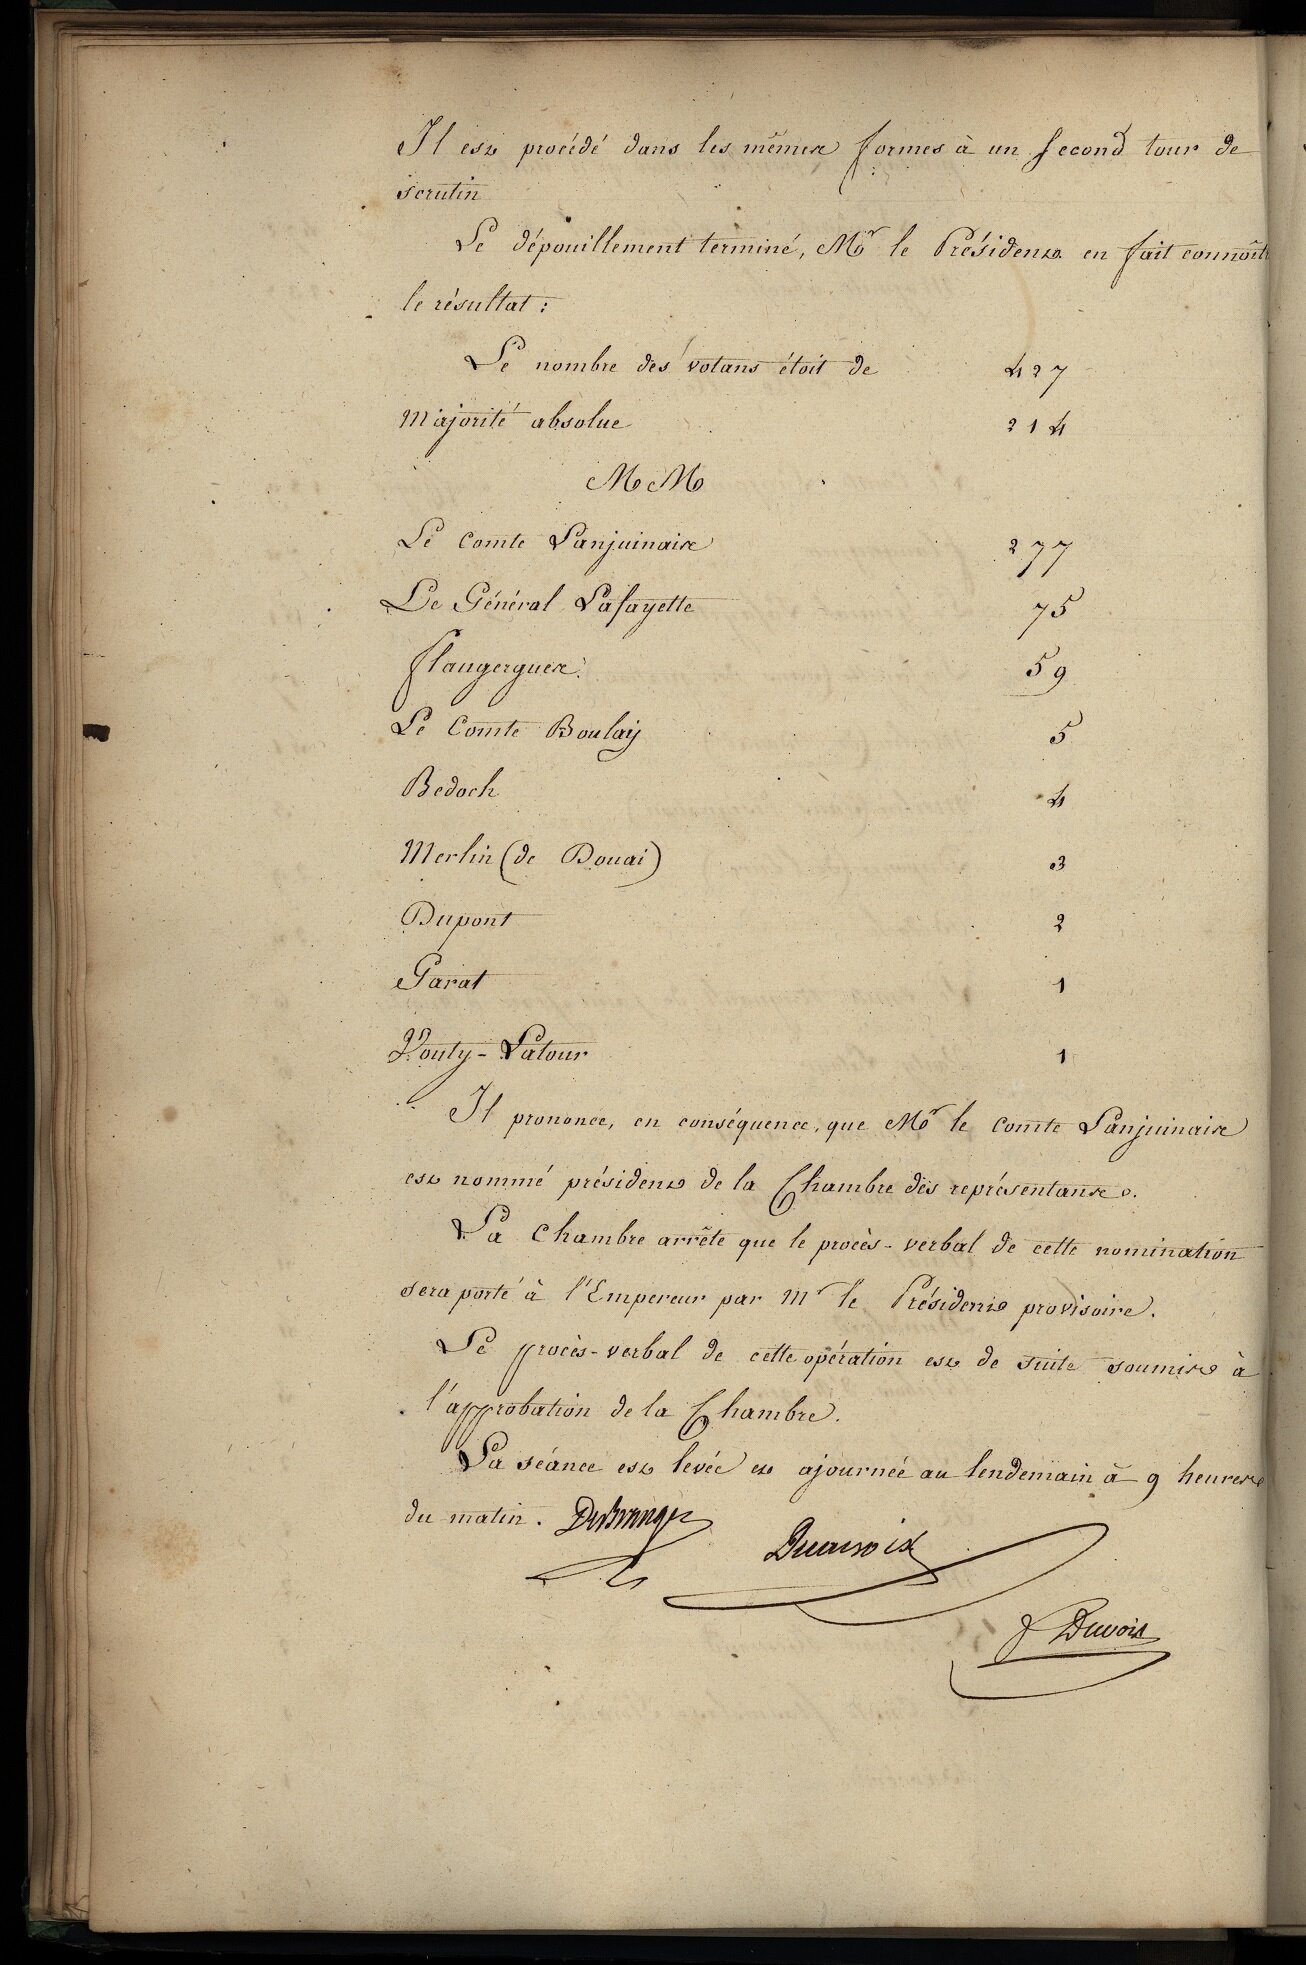 Il est procédé dans les mêmes formes à un second tour de
scrutin
Le dépouillement terminé, Mr le Président en fait connoît
le résultat :
Le nombre des votans étoit de 427
Majorité absolue 214
MM
Le Comte Lanjuinais 277
Le Général Lafayette 75
flaugergues. 59
Le Comte Boulay 5
Bedoch 4
Merlin (de Douai) 3
Dupont 2
Garat 1
Vouty-Latour 1
Il prononce, en conséquence, que Mr le Comte Lanjuinais
est nommé président de la Chambre des représentans.
La Chambre arrête que le procès-verbal de cette nomination
sera porté à l'Empereur par Mr le Président provisoire.
Le procès-verbal de cette opération est de suite soumis à
l'approbation de la Chambre.
La séance est levée et ajournée au lendemain à 9 heures
du matin.